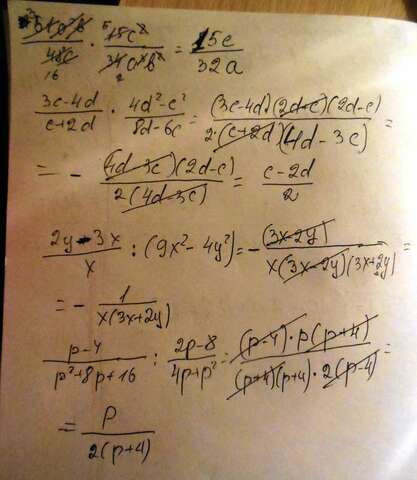 51a²b/48c · 15c²/34a³b² = 15c/32a
3c-4d/c+2d · 4d²-c²/8d-6c = (3c-4d)(2d-c)(2d+c)/2·(c+2d)(4d-3c) =
= - (4d-3c)(2d-c)/2(4d-3c) = c-2d/2
2y-3x/x : (9x²-4y²) = - (3x-2y)/x(3x-2y)(3x+2y) =
= - 1/x(3x+2y)
p-4/p²+8p+16 : 2p-8/4p+p² = (p-4)·p(p+4)/(p+4)(p+4)·2(p-4) =
= p/2(p+4)